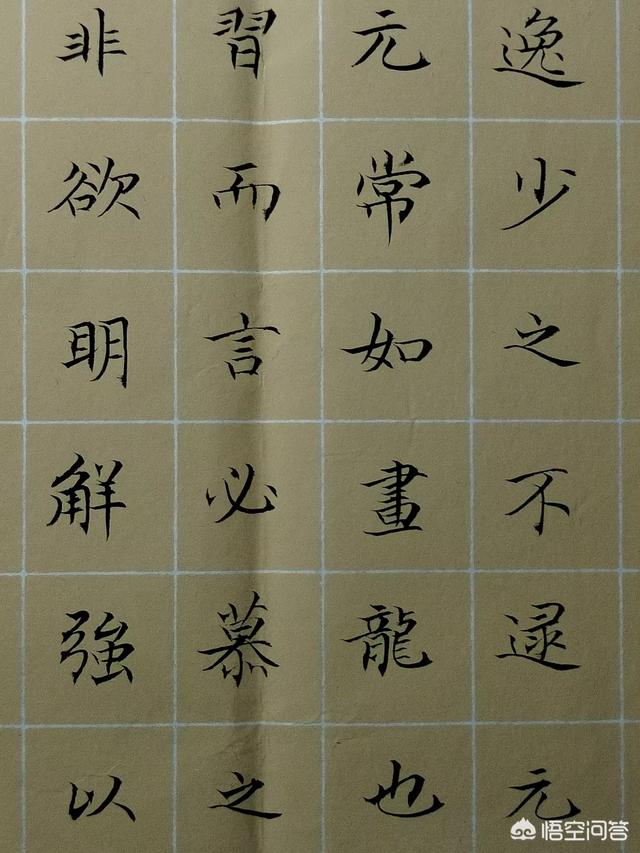 逸少之不逯元
元常如畫龍也
習而言必慕之
非欲明解強以
悟空问答